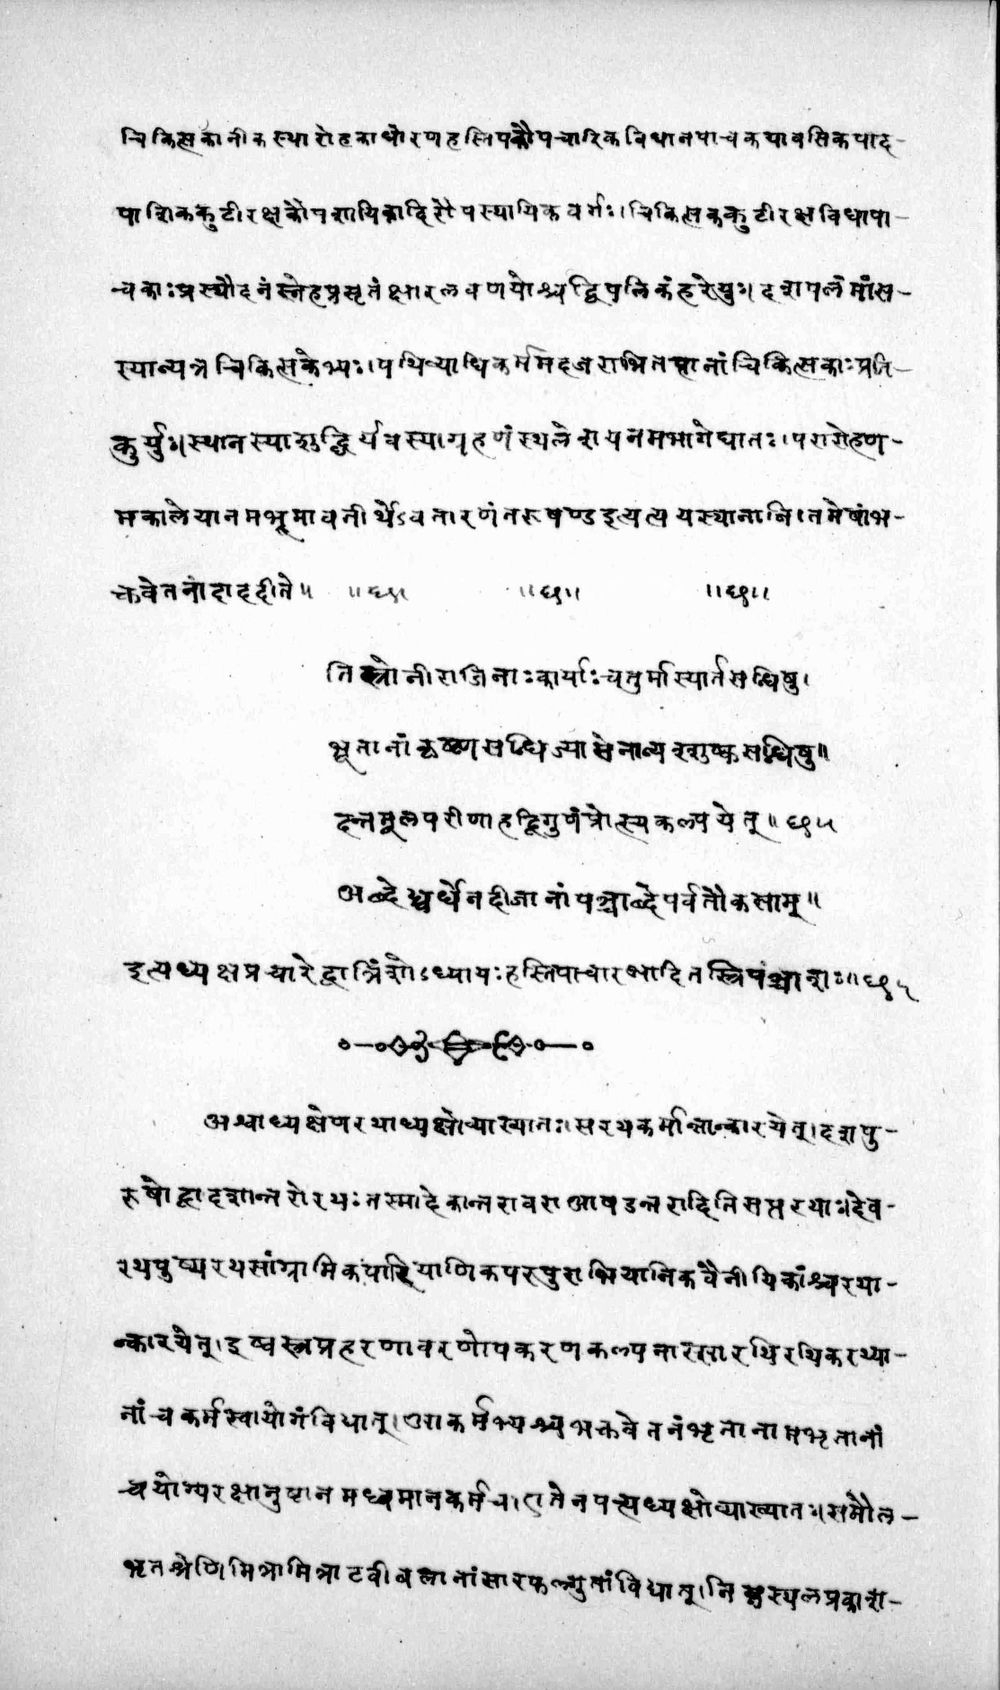 चिकित्सकानीकस्थारोहकाधोरणहस्तिपकौपचारिकविधानपाचकयावसिकपाद-
पाशिककुटीरक्षकौपशायिकादिरौपस्थायिकवर्गः।चिकित्सककुटीरक्षविधापा-
चकाःप्रस्थौदनंस्नेहप्रसृतंक्षारलवणयोश्चद्विपलिकंहरेयुः।दशपलंमांस-
स्यान्यत्रचिकित्सकेभ्यः।पथिव्याधिकर्ममदजराभितप्तानांचिकित्सकाःप्रति-
कुर्युः।स्थानस्याशुद्धिर्यवस्याग्रहणंस्थलेशयनमभागेघातः।परारोहण-
मकालेयानमभूमावतीर्थेऽवतारणंतरूषण्डइत्यत्ययस्थानानि।तमेषांभ-
क्तवेतनादाददीत॥ ॥६९॥ ॥६९॥ ॥६९॥
तिस्रोनीराजिनाःकार्याःचतुर्मास्यार्तसन्धिषु।
भूतानांकृष्णसन्धिज्यासेनान्यश्शुक्लसन्धिषु॥
दन्तमूलपरीणाहद्विगुणंप्रोत्स्यकल्पयेत्॥६९५
अब्देध्व्यर्धेनदीजानांपञ्चाब्देपर्वतौकसाम्॥
इत्यध्यक्षप्रचारेद्वात्रिंशोऽध्यायःहस्तिपाचारआदितस्त्रिपंञ्चाशः॥६९५
अश्वाध्यक्षेणरथाध्यक्षोव्याख्यातः।सरथकर्मान्तान्कारयेत्।दशपु-
रूषोद्वादशान्तरोरथःतस्मादेकान्तरावराआषडन्तरादितिसप्तरथाः।देव-
रथपुष्यरथसांग्रामिकपारियाणिकपरपुराभियानिकवैनीयिकांश्चरथा-
न्कारयेत्।इष्वस्त्रप्रहरणावरणोपकरणकल्पनास्सारथिरथिकरथ्या-
नांचकर्मस्वायोगंविधात्।आकर्मभ्यश्चभक्तवेतनंभृतानामभृतानां
चयोग्यरक्षानुष्टानमध्वमानकर्मच।एतेनपत्त्यध्यक्षोव्याख्यातः।समौल-
भृतश्रेणिमित्रामित्राटवीबलानांसारफल्गुतांविधात्।निम्नस्थलप्रकाश-